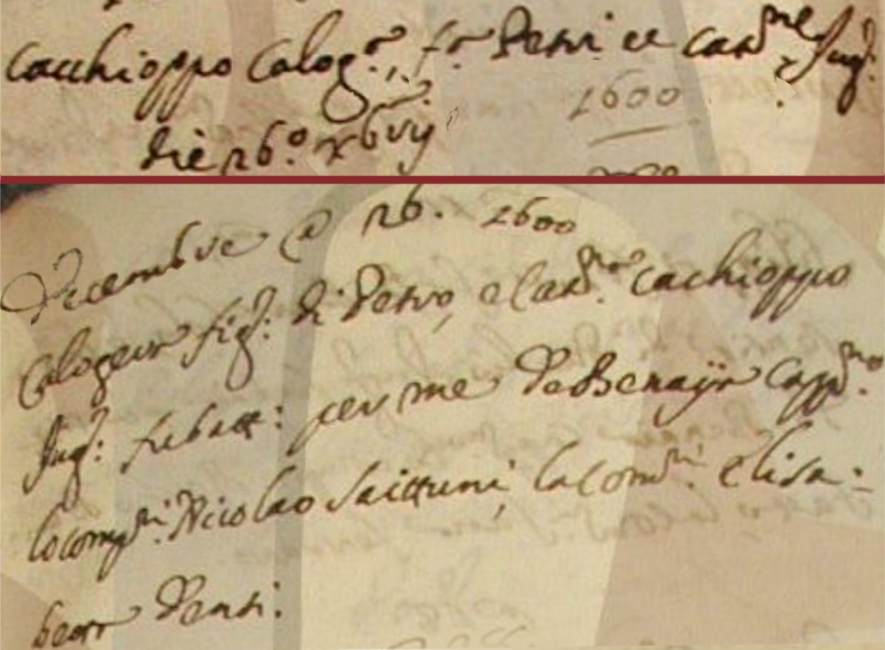 Cacchioppo Calog.º, f.º Petri et Cat.me Jug.
die 26.º xbrij 1600
Decembre @ 26. 1600
Calogero figl: di Petro, e Cat.na Cachioppo
Jug: fu batt: per me De Benajr Capp.no
locomp.ri Nicolao Saittuni, la Com.ri Elisa-
betta